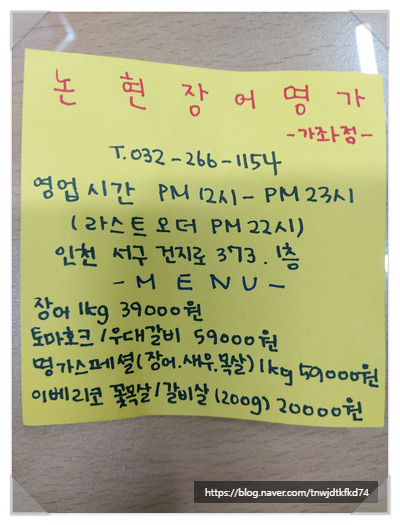 논 현 장 어 명 가
-가좌점-
T.032-266-1154
영업시간 PM 12시- PM 23시
(라스트오더 PM 22시)
인천 서구 건지로 373. 1층
- M E N U -
장어 1kg 39000원
토마호크/우대갈비 59000원
명가스페셜(장어.새우.목살) 1kg 59000원
이베리코 꽃목살/갈비살 (200g) 20000원
https://blog.naver.com/tnwjdtkfkd74